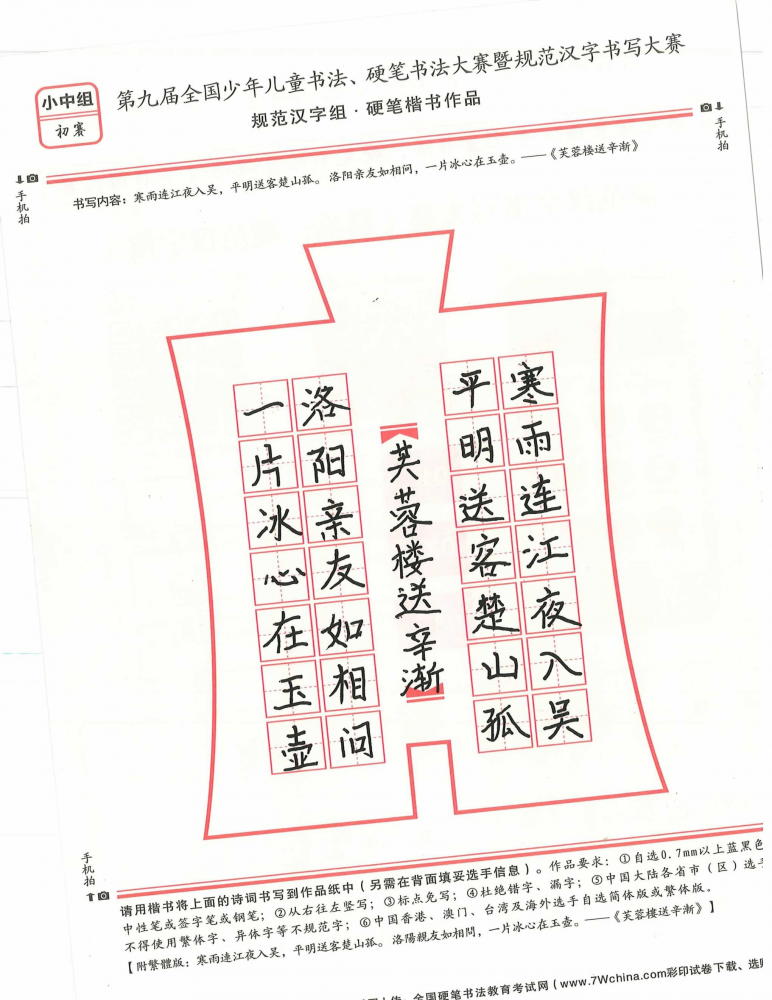 小中组
初赛
第九届全国少年儿童书法、硬笔书法大赛暨规范汉字书写大赛
规范汉字组·硬笔楷书作品
手机拍
手机拍
书写内容：寒雨连江夜入吴，平明送客楚山孤。洛阳亲友如相问，一片冰心在玉壶。——《芙蓉楼送辛渐》
寒雨连江夜入吴
平明送客楚山孤
芙蓉楼送辛渐
洛阳亲友如相问
一片冰心在玉壶
手机拍
请用楷书将上面的诗词书写到作品纸中（另需在背面填妥选手信息）。作品要求：①自选0.7mm以上蓝黑色
中性笔或签字笔或钢笔；②从右往左竖写；③标点免写；④杜绝错字、漏字；⑤中国大陆各省市（区）选手
不得使用繁体字、异体字等不规范字；⑥中国香港、澳门、台湾及海外选手自选简体版或繁体版。
【附繁體版：寒雨連江夜入吴，平明送客楚山孤。洛陽親友如相問，一片冰心在玉壶。——《芙蓉樓送辛漸》】
全国硬笔书法教育考试网（www.7Wchina.com彩印试卷下载、选